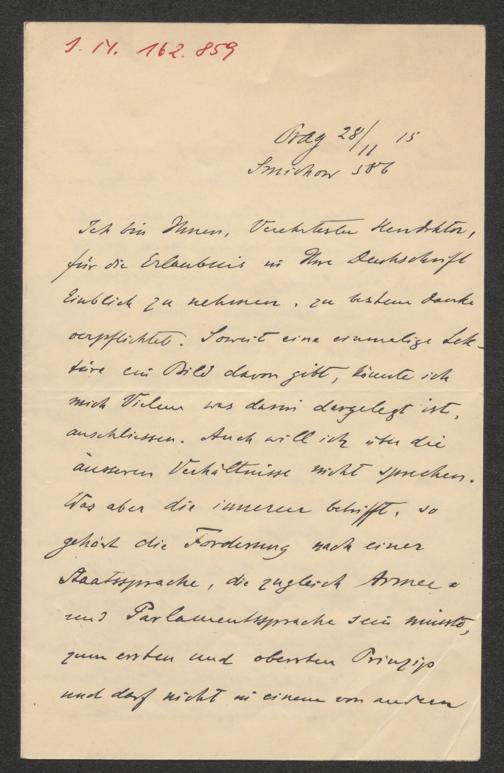 I. N. 162.859
Prag 28/11 15
Smichow 586
Ich bin Ihnen, Verehrtester Herr Doktor,
für die Erlaubnis in Ihre Denkschrift
Einblick zu nehmen, zu bestem Danke
verpflichtet. Soweit eine einmalige Lek-
türe ein Bild davon gibt, könnte ich
mich Vielem was darin dargelegt ist,
anschliessen. Auch will ich über die
äusseren Verhältnisse nicht sprechen.
Was aber die inneren betrifft, so
gehört die Forderung nach einer
Staatssprache, die zugleich Armee=
und Parlamentssprache sein müsste,
zum ersten und obersten Prinzip
und darf nicht in einem von andern